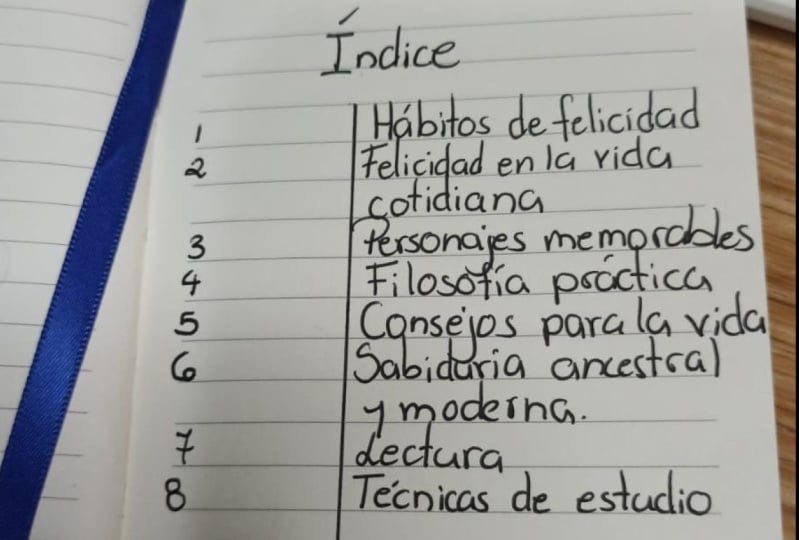 Índice
1 Hábitos de felicidad
2 Felicidad en la vida
cotidiana
3 Personajes memorables
4 Filosofía práctica
5 Consejos para la vida
6 Sabiduria ancestral
y moderna.
7 Lectura
8 Técnicas de estudio